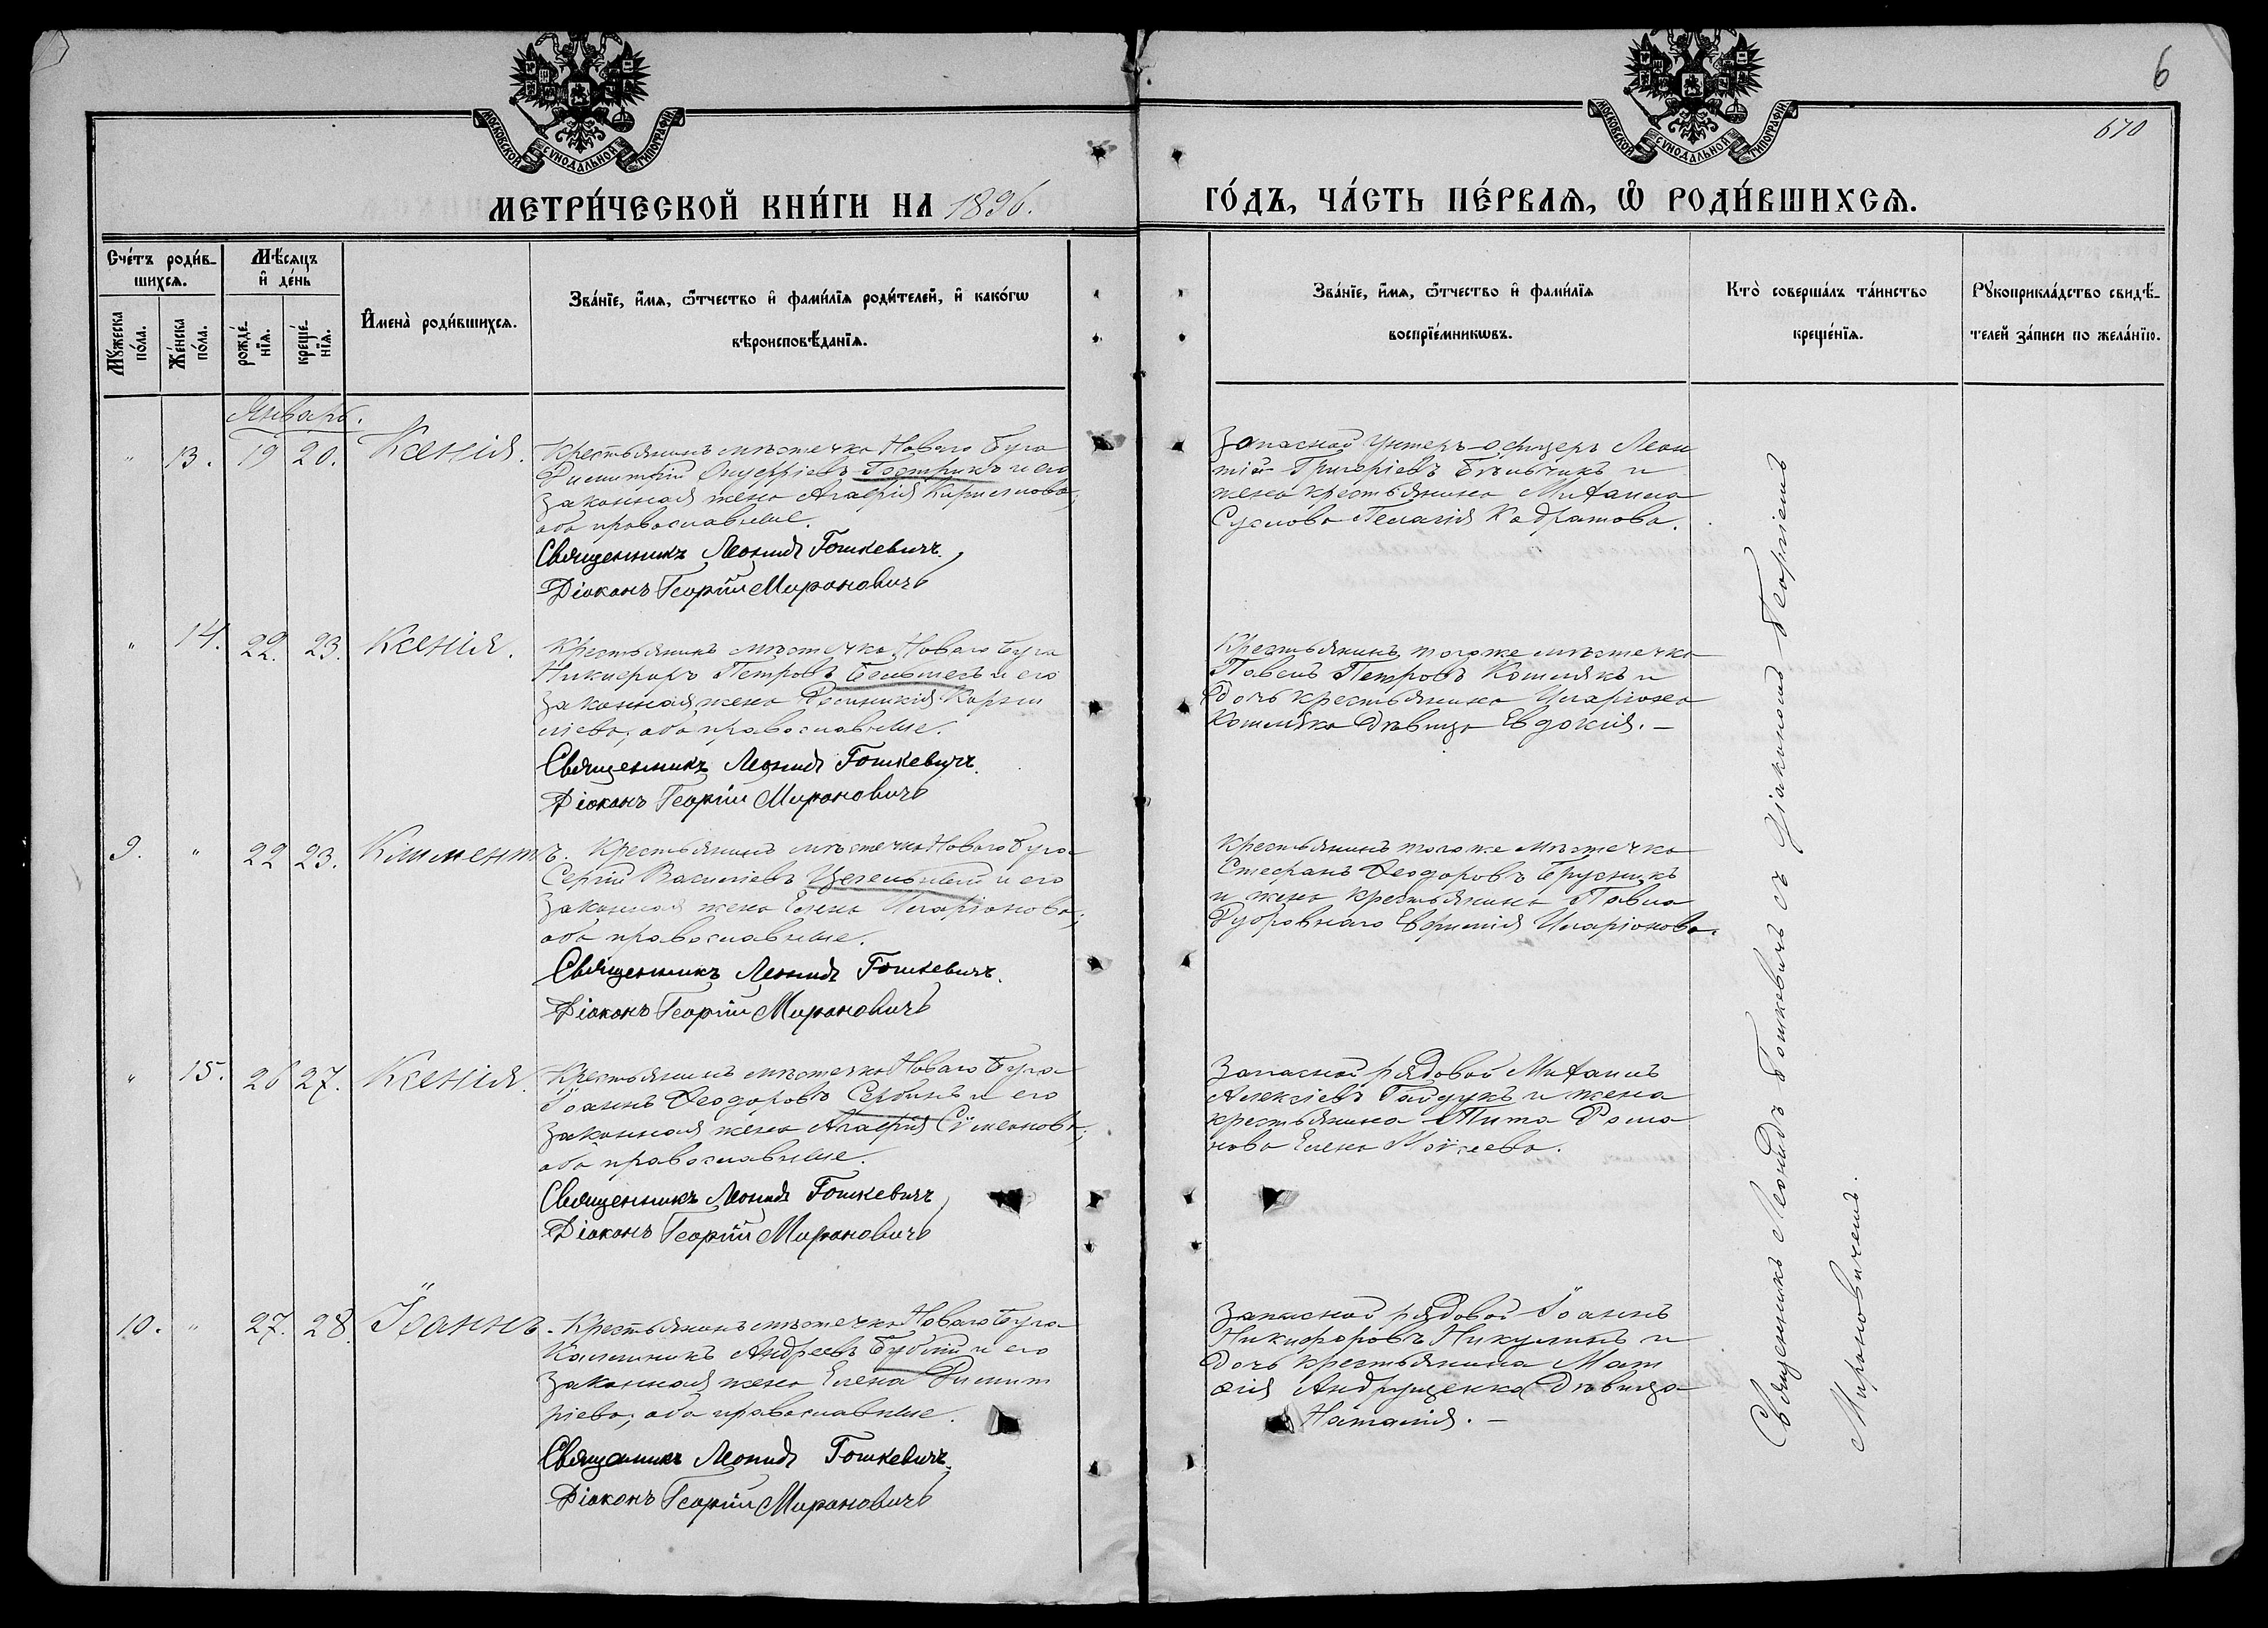 6
670
МОСКОВСКОЙ СѴНОДАЛЬНОЙ ТИПОГРАФІИ
МОСКОВСКОЙ СѴНОДАЛЬНОЙ ТИПОГРАФІИ
МЕТРИ́ЧЕСКОЙ КНИ́ГИ НА 1896.
ГО́ДЪ, ЧА́СТЬ ПЕ́РВАѦ, Ѡ҆ РОДИ́ВШИХСѦ.
Сче́тъ роди́в-
шихсѧ.
Мꙋ́жеска
по́ла.
Же́нска
по́ла.
Мѣ́сѧцъ
и҆ де́нь
рожде́-
нїѧ.
креще́-
нїѧ.
И҆мена̀ роди́вшихсѧ.
Зва́нїе, и҆́мѧ, ѻ҆́тчество и҆ фами́лїѧ роди́телей, и҆ како́гѡ
вѣроисповѣ́данїѧ.
Зва́нїе, и҆́мѧ, ѻ҆́тчество и҆ фами́лїѧ
воспрїе́мникѡвъ.
Кто̀ соверша́лъ та́инство
креще́нїѧ.
Рꙋкоприкла́дство свидѣ́-
телей за́писи по жела́нїю.
Январь.
" 13. 19 20. Ксенія.
Крестьянинъ мѣстечка Новаго Буга
Димитрій Онуфріевъ и его
законная жена Агафія Кириллова,
оба православные.
Священникъ Леонидъ Гошкевичъ.
Діаконъ Георгій Мироновичъ
Запасной унтеръ-офицеръ Леон
тій Григоріевъ Бѣльчикъ и
жена крестьянина Михаила
Суслова Пелагія Кодратова.
" 14. 22. 23. Ксенія.
Крестьянинъ мѣстечка Новаго Буга
Никифоръ Петровъ и его
законная жена Домникія Корни
ліева, оба православные.
Священникъ Леонидъ Гошкевичъ.
Діаконъ Георгій Мироновичъ
Крестьянинъ того же мѣстечка
Павелъ Петровъ Кошлякъ и
дочь крестьянина Иларіона
Кошляка дѣвица Евдокія. —
9. " 22 23. Климентъ.
Крестьянинъ мѣстечка Новаго Буга
Сергій Василіевъ и его
законная жена Елена Иларіонова,
оба православные.
Священникъ Леонидъ Гошкевичъ.
Діаконъ Георгій Мироновичъ
Крестьянинъ того же мѣстечка
Стефанъ Ѳеодоровъ Брусникъ
и жена крестьянина Павла
Дубровнаго Евфимія Иларіонова.
" 15. 26 27. Ксенія.
Крестьянинъ мѣстечка Новаго Буга
Іоаннъ Ѳеодоровъ Сербинъ и его
законная жена Агафія Сѵмеонова,
оба православные.
Священникъ Леонидъ Гошкевичъ
Діаконъ Георгій Мироновичъ
Запасной рядовой Михаилъ
Алексіевъ Гайдукъ и жена
крестьянина Тита Рома
нова Елена Моѵсеева.
10. " 27. 28. Іоаннъ.
Крестьянинъ мѣстечка Новаго Буга
Каллиникъ Андреевъ и его
законная жена Елена Димит
ріева, оба православные.
Священникъ Леонидъ Гошкевичъ.
Діаконъ Георгій Мироновичъ
Запасной рядовой Іоаннъ
Никифоровъ Никулинъ и
дочь крестьянина Мат
ѳія Андрущенка дѣвица
Наталія. —
Священникъ Леонидъ Гошкевичъ съ діакономъ Георгіемъ
Мироновичемъ.